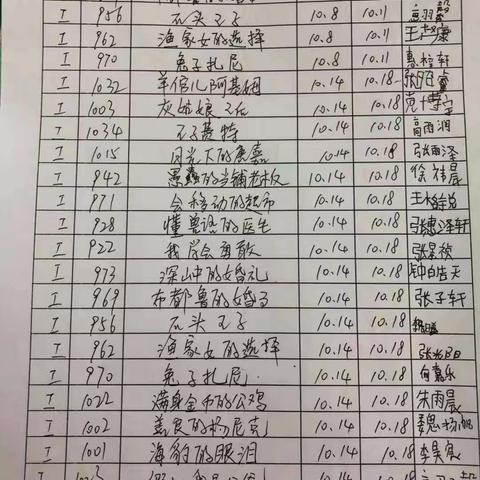 I 956 石头王子 10.8 10.11
I 962 渔家女的选择 10.8 10.11 王梓康
I 970 兔子扎尼 10.8 10.11 惠梓轩
I 1032 羊倌儿阿基姆 10.14 10.18
I 1003 灰姑娘王后 10.14 10.18 克博宇
I 1034 王子费特 10.14 10.18 高雨润
I 1015 月光下的康嘉 10.14 10.18 张雨泽
I 942 愚蠢的当铺老板 10.14 10.18 徐祎晨
I 971 会移动的超市 10.14 10.18
I 928 懂兽语的医生 10.14 10.18 张穗泽轩
I 922 我学会勇敢 10.14 10.18
I 973 深山中的婚礼 10.14 10.18 钟皓天
I 969 布都鲁的婚事 10.14 10.18 张子轩
I 956 石头王子 10.14 10.18
I 962 渔家女的选择 10.14 10.18
I 970 兔子扎尼. 10.14 10.18 白嘉乐
I 1022 满身金币的公鸡 10.14 10.18 朱雨晨
I 1002 善良的杨尼克 10.14 10.18 魏杨帆
I 1001 海豹的眼泪 10.14 10.18 李昊宸
I 10.14 10.18